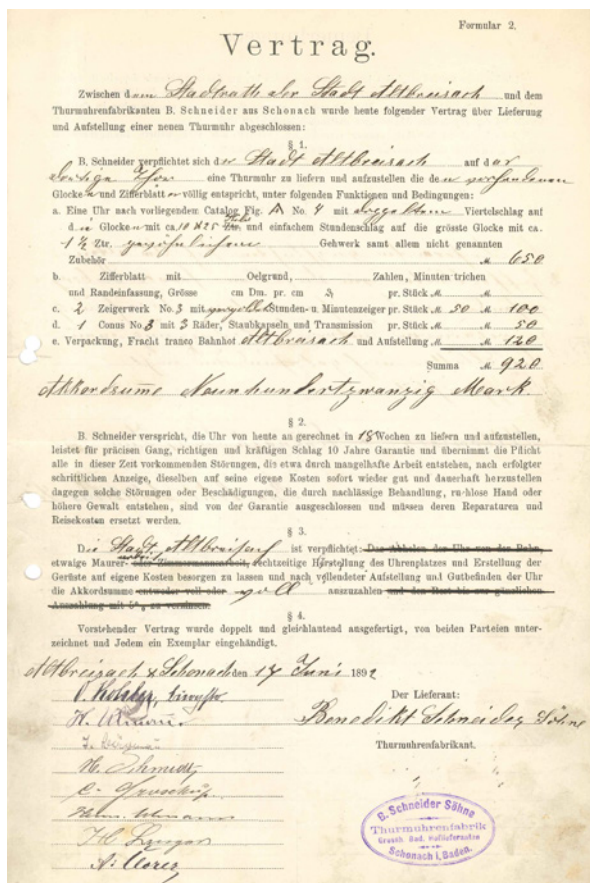 Formular 2.
Vertrag.
Zwischen dem Stadtrath der Stadt Altbreisach und dem
Thurmuhrenfabrikanten B. Schneider aus Schonach wurde heute folgender Vertrag über Lieferung
und Aufstellung einer neuem Thurmuhr abgeschlossen:
§ 1.
B. Schneider verpflichtet sich der Stadt Altbreisach auf dar
dortige Thor eine Thurmuhr zu liefern und aufzustellen die den vorhandenen
Glocken und Zifferblatt völlig entspricht, unter folgenden Funktionen und Bedingungen:
a. Eine Uhr nach vorliegenden Catalog Fig. A No. 4 mit doppeltem Viertelschlag auf
die Glocken mit ca. 10 & 25 Kilo und einfachem Stundenschlag auf die grösste Glocke mit ca.
1 ½ Ztr. gewöhnlichem Gehwerk samt allem nicht genannten
Zubehör M. 650
b. Zifferblatt mit Oelgrund, Zahlen, Minuten-trichen
und Randeinfassung, Grösse cm Dm. pr. cm pr. Stück M. M.
c. 2 Zeigerwerk No. 3 mit vergoldet Stunden- u. Minutenzeiger pr. Stück M. 50 M. 100
d. 1 Conus No. 3 mit 3 Räder, Staubkapseln und Transmission pr. Stück M. M. 50
e. Verpackung, Fracht franco Bahnhof Altbreisach und Aufstellung M. M. 120
Summa M. 920
Akkordsumme Neunhundertzwanzig Mark.
§ 2.
B. Schneider verspricht, die Uhr von heute an gerechnet in 18 Wochen zu liefern und aufzustellen,
leistet für präcisen Gang, richtigen und kräftigen Schlag 10 Jahre Garantie und übernimmt die Pflicht
alle in dieser Zeit vorkommenden Störungen, die etwa durch mangelhafte Arbeit entstehen, nach erfolgter
schriftlichen Anzeige, dieselben auf seine eigene Kosten sofort wieder gut und dauerhaft herzustellen
dagegen solche Störungen oder Beschädigungen, die durch nachlässige Behandlung, ru-hlose Hand oder
höhere Gewalt entstehen, sind von der Garantie ausgeschlossen und müssen deren Reparaturen und
Reisekosten ersetzt werden.
§ 3.
Die Stadt Altbreisach ist verpflichtet: Das Abholen der Uhr von der Bahn,
etwaige Maurer- oder Zimmermannarbeit, rechtzeitige Herstellung des Uhrenplatzes und Erstellung der
Gerüste auf eigene Kosten besorgen zu lassen und nach vollendeter Aufstellung und Gutbefinden der Uhr
die Akkordsumme entweder voll oder voll auszuzahlen und den Rest bis zur gänzlichen
Auszahlung mit 5% zu verzinsen.
§ 4.
Vorstehender Vertrag wurde doppelt und gleichlautend ausgefertigt, von beiden Parteien unter-
zeichnet und Jedem ein Exemplar eingehändigt.
Altbreisach & Schonach den 17 Juni 1892
Der Lieferant:
Benedikt Schneider Söhne
Thurmuhrenfabrikant.
H. Schmidt
B. Schneider Söhne
Thurmuhrenfabrik
Grossh. Bad. Hoflieferanten
Schonach i. Baden.